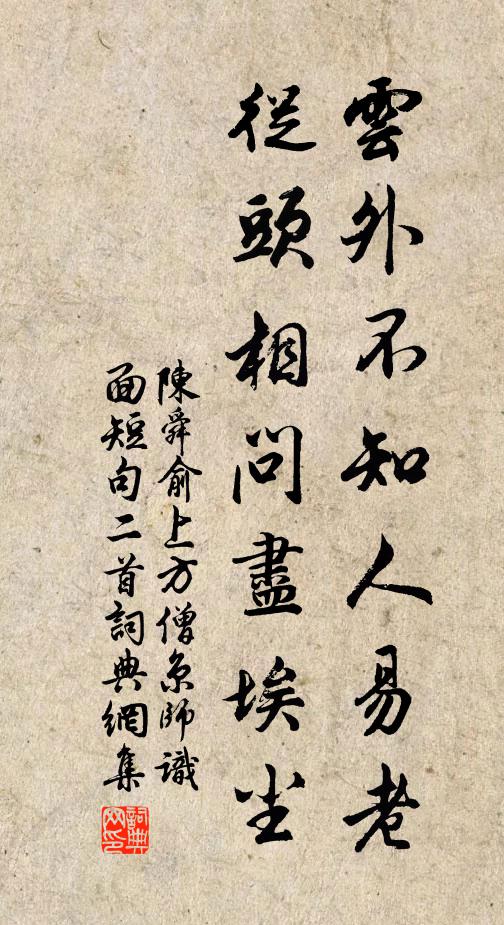 雲外不知人易老
從頭相問盡埃尘
陳舜俞上方僧京師識
面短句二首詞典網集
詞典网印